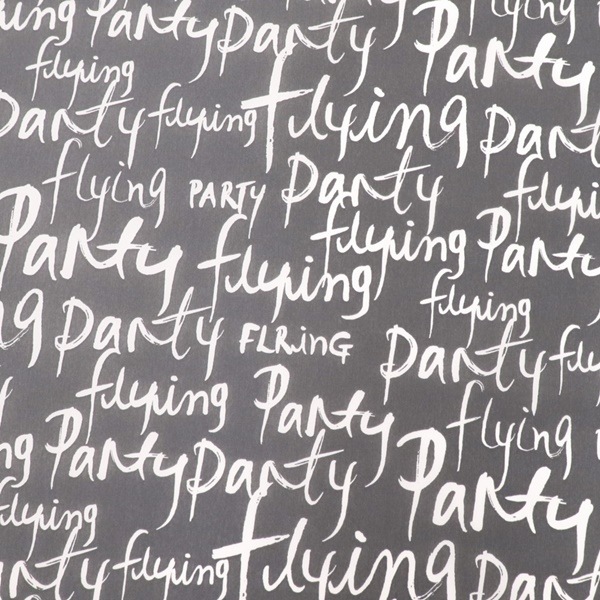 flying Party Party Party flying
flying Party
Party flying flying Party
flying PARTY Party flying
Party flying flying Party
flying
Party FLRiNG Party flying
flying Party flying
Party Party Party
flying
Party flying flying Party